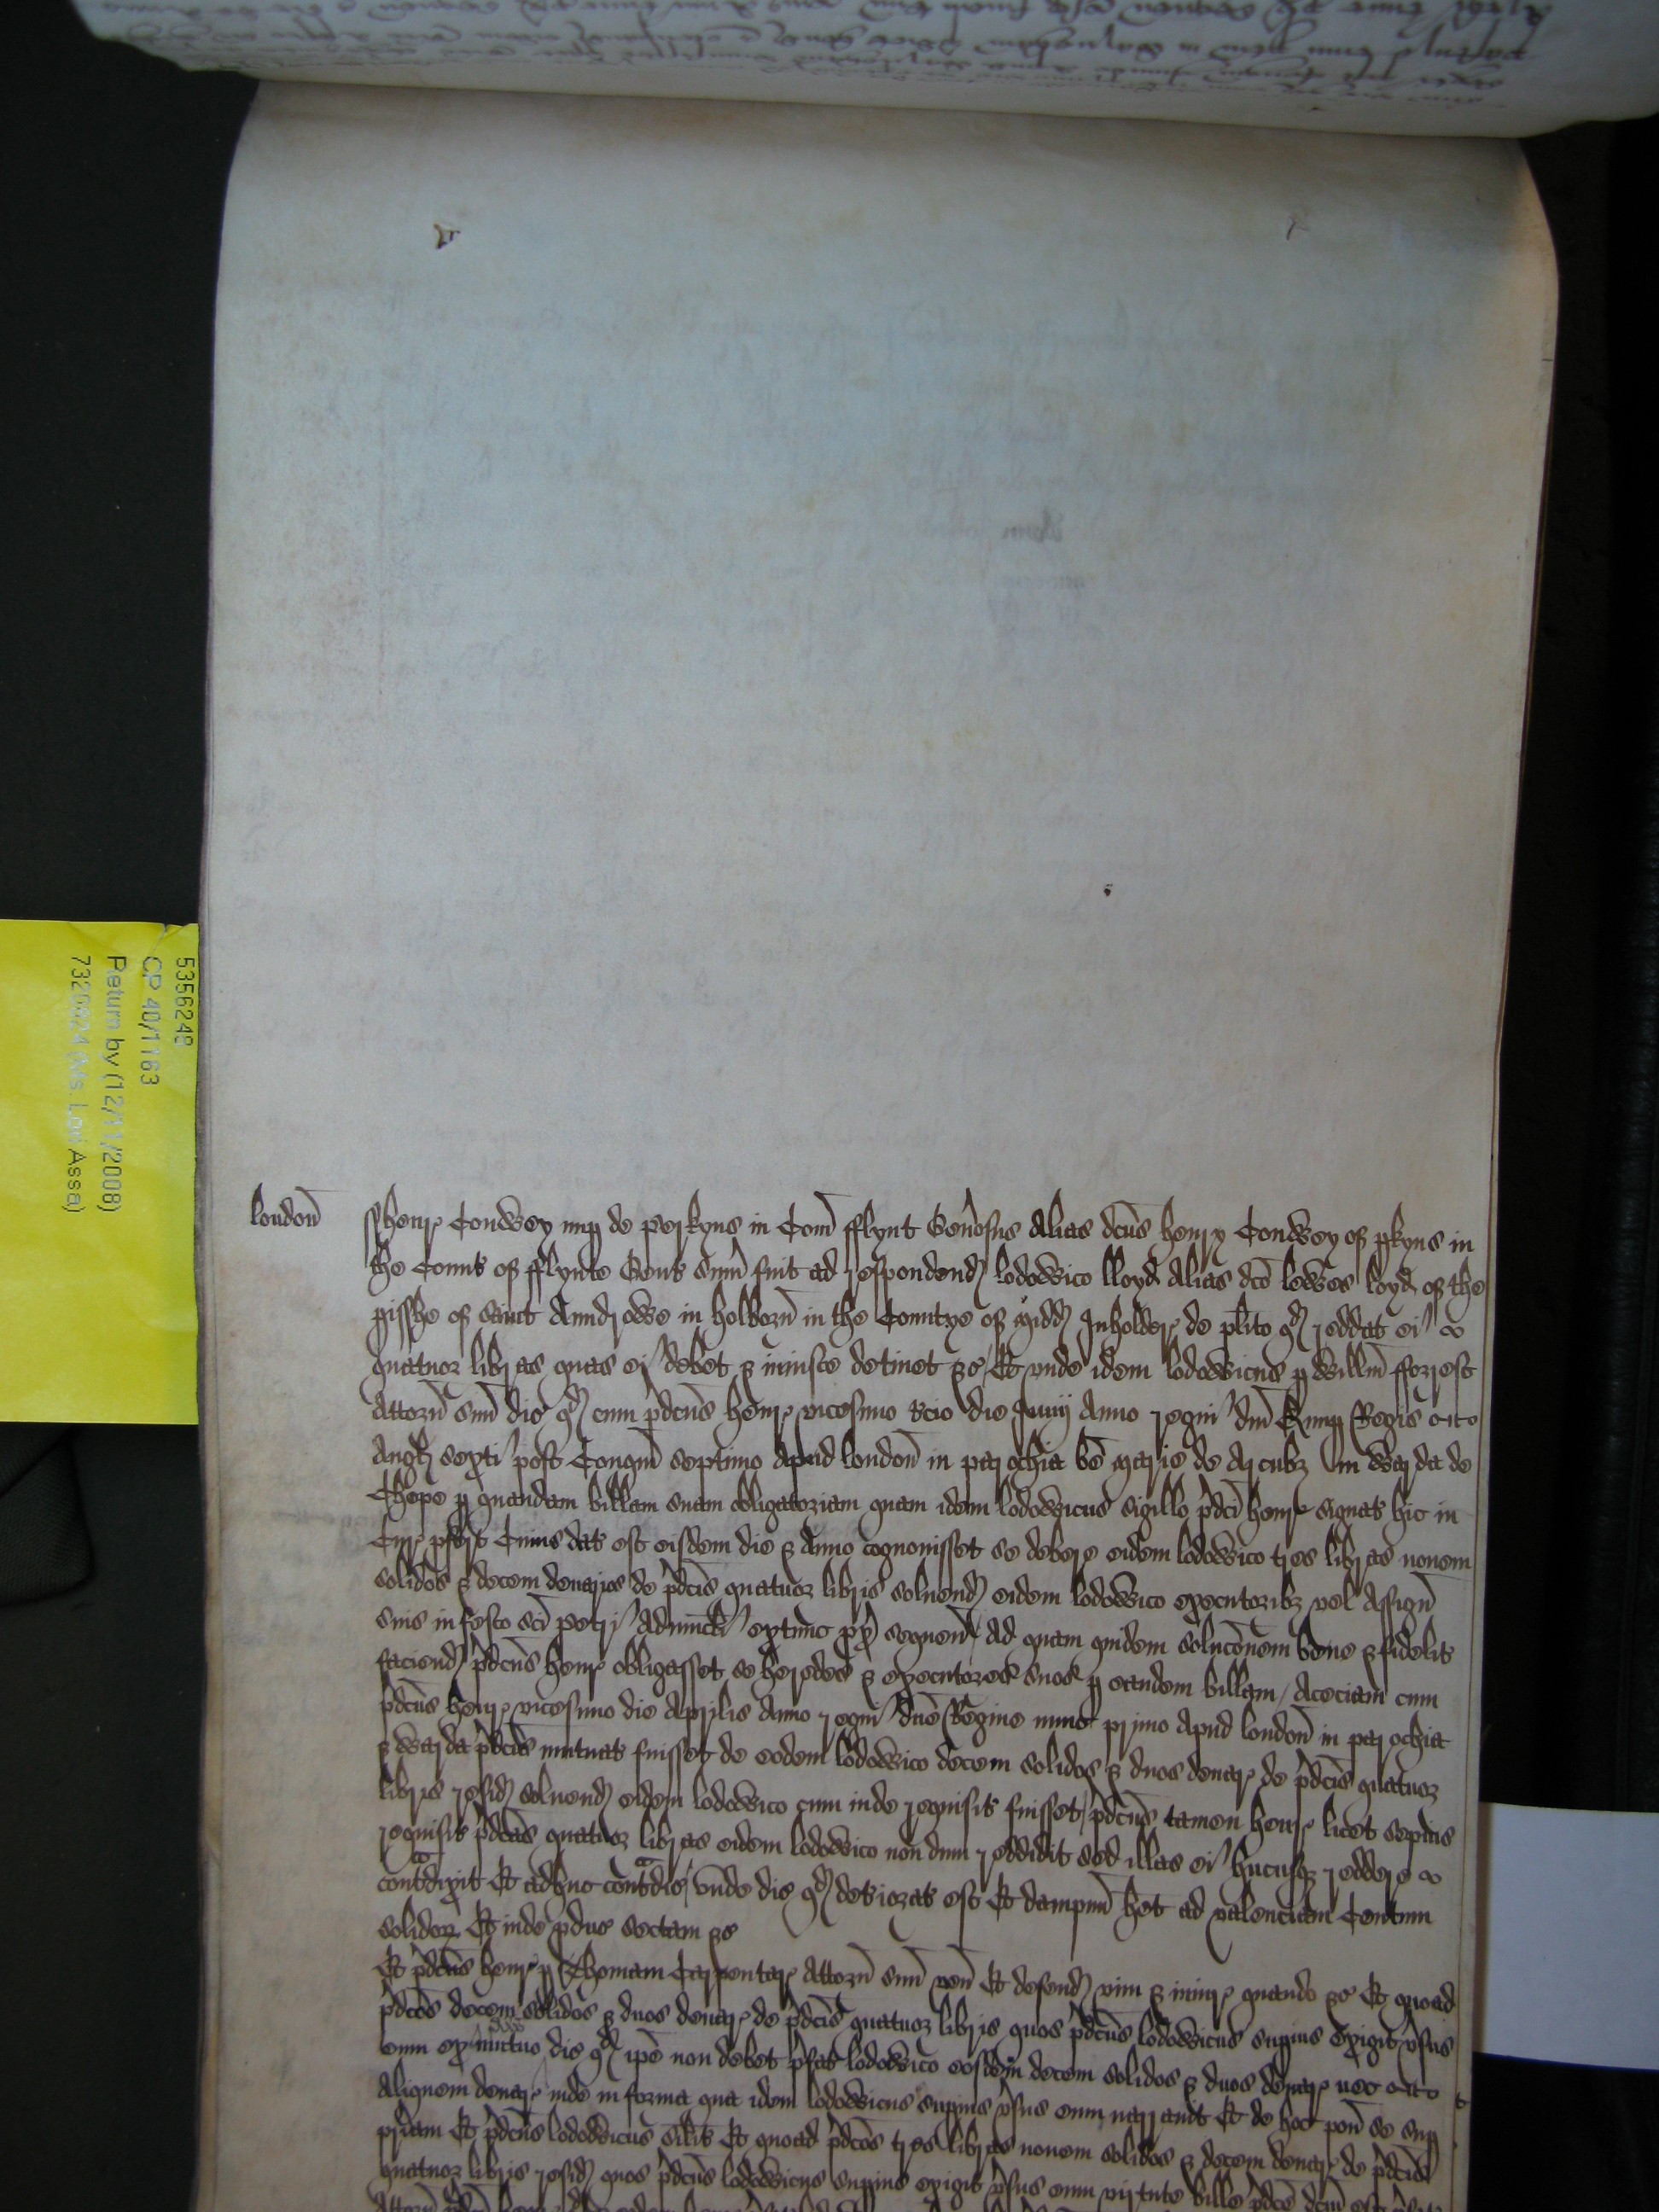 5356248
CP 40/1163
Return by (12/11/2008)
7320624 (Ms. Lori Assa)
londoñ
henr Conwey nup de perkyns in Com̃ fflynt Geñosus alias dcũs henry Conwey of pkyns in
the Count of fflynte Gent sum̃ fuit ad respondend lodowico lloyd alias dcõ lewes loyd of the
pisshe of saint Androwe in holborñ in the Countye of midd Inholder de plito qd reddat ei
quatuor libras quas ei debet & iniuste detinet &c Et unde idem lodowicus p willm̃ fforrest
attorñ suũ dic qd cum p̃dcũs henr vicesimo tcio die Junij Anno regni dñi E nup Regis
Angl sexti post Conqm̃ septimo apud londoñ in parochia bẽ marie de Arcubz in warda de
Chepe p quandam billam suam obligatoriam quam idem lodowicus sigillo p̃dci henr signat hic in
Cur pfert Cuius dat est eisdem die & Anno cognouisset se debere eidem lodowico tres libras nouem
solidos & decem denarios de p̃dcis quatuor libris soluend eidem lodowico executoribz vel Assigñ
suis in festo sci petri Aduincla extunc px̃ sequeñ Ad quam quidem solucõnem bene & fidelit
faciend p̃dcũs henr obligasset se heredes & executores suos p eandem billam / Aceciam cum
p̃dcũs henr vicesimo die Aprilis Anno regni dñe Regine nunc primo apud londoñ in parochia
& warda p̃dcis mutuat fuisset de eodem lodowico decem solidos & duos denar de p̃dcis quatuor
libris resid soluend eidem lodowico cum inde requisit fuisset / p̃dcũs tamen henr licet sepius
requisit p̃dcãs quatuor libras eidem lodowico non dum reddidit sed illas ei hucusqz reddere
contdixit Et adhuc contdic / unde dic qd deteriorat est Et dampnũ het ad valenciam Centum
solidor Et inde pduc sectam &c
Et p̃dcũs henr p Thomam Carpenter attorñ suũ veñ Et defend vim & iniur quando &c Et quoad
p̃dcõs decem solidos & duos denar de p̃dcis quatuor libris quos p̃dcũs lodowicus supius exigit vsus
eum ex mutuo dic qd ipẽ non debet p̃fat lodowico eosdem decem solidos & duos denar nec
aliquem denar inde in forma qua idem lodowicus supius vsus eum narrauit Et de hoc poñ se sup
priam Et p̃dcũs lodowicus silit Et quoad p̃dcãs tres libras nouem solidos & decem denar de p̃dcis
quatuor libris resid quos p̃dcũs lodowicus supius exigit vsus eum virtute bille p̃dce